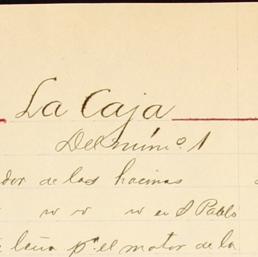 La Caja
Del núm.º 1
dor de las hacinas
" " " " en S Pablo
leña p.ª el motor de la